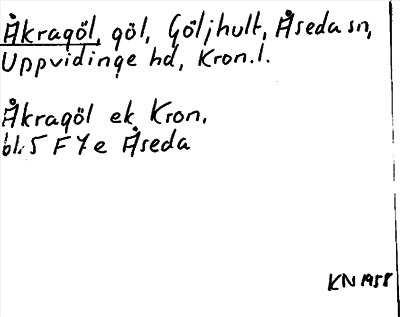 Åkragöl, göl, Göljhult, Åseda sn,
Uppvidinge hd, Kron.l.
Åkragöl ek Kron.
bl. 5 F 7 e Åseda
KN 1958